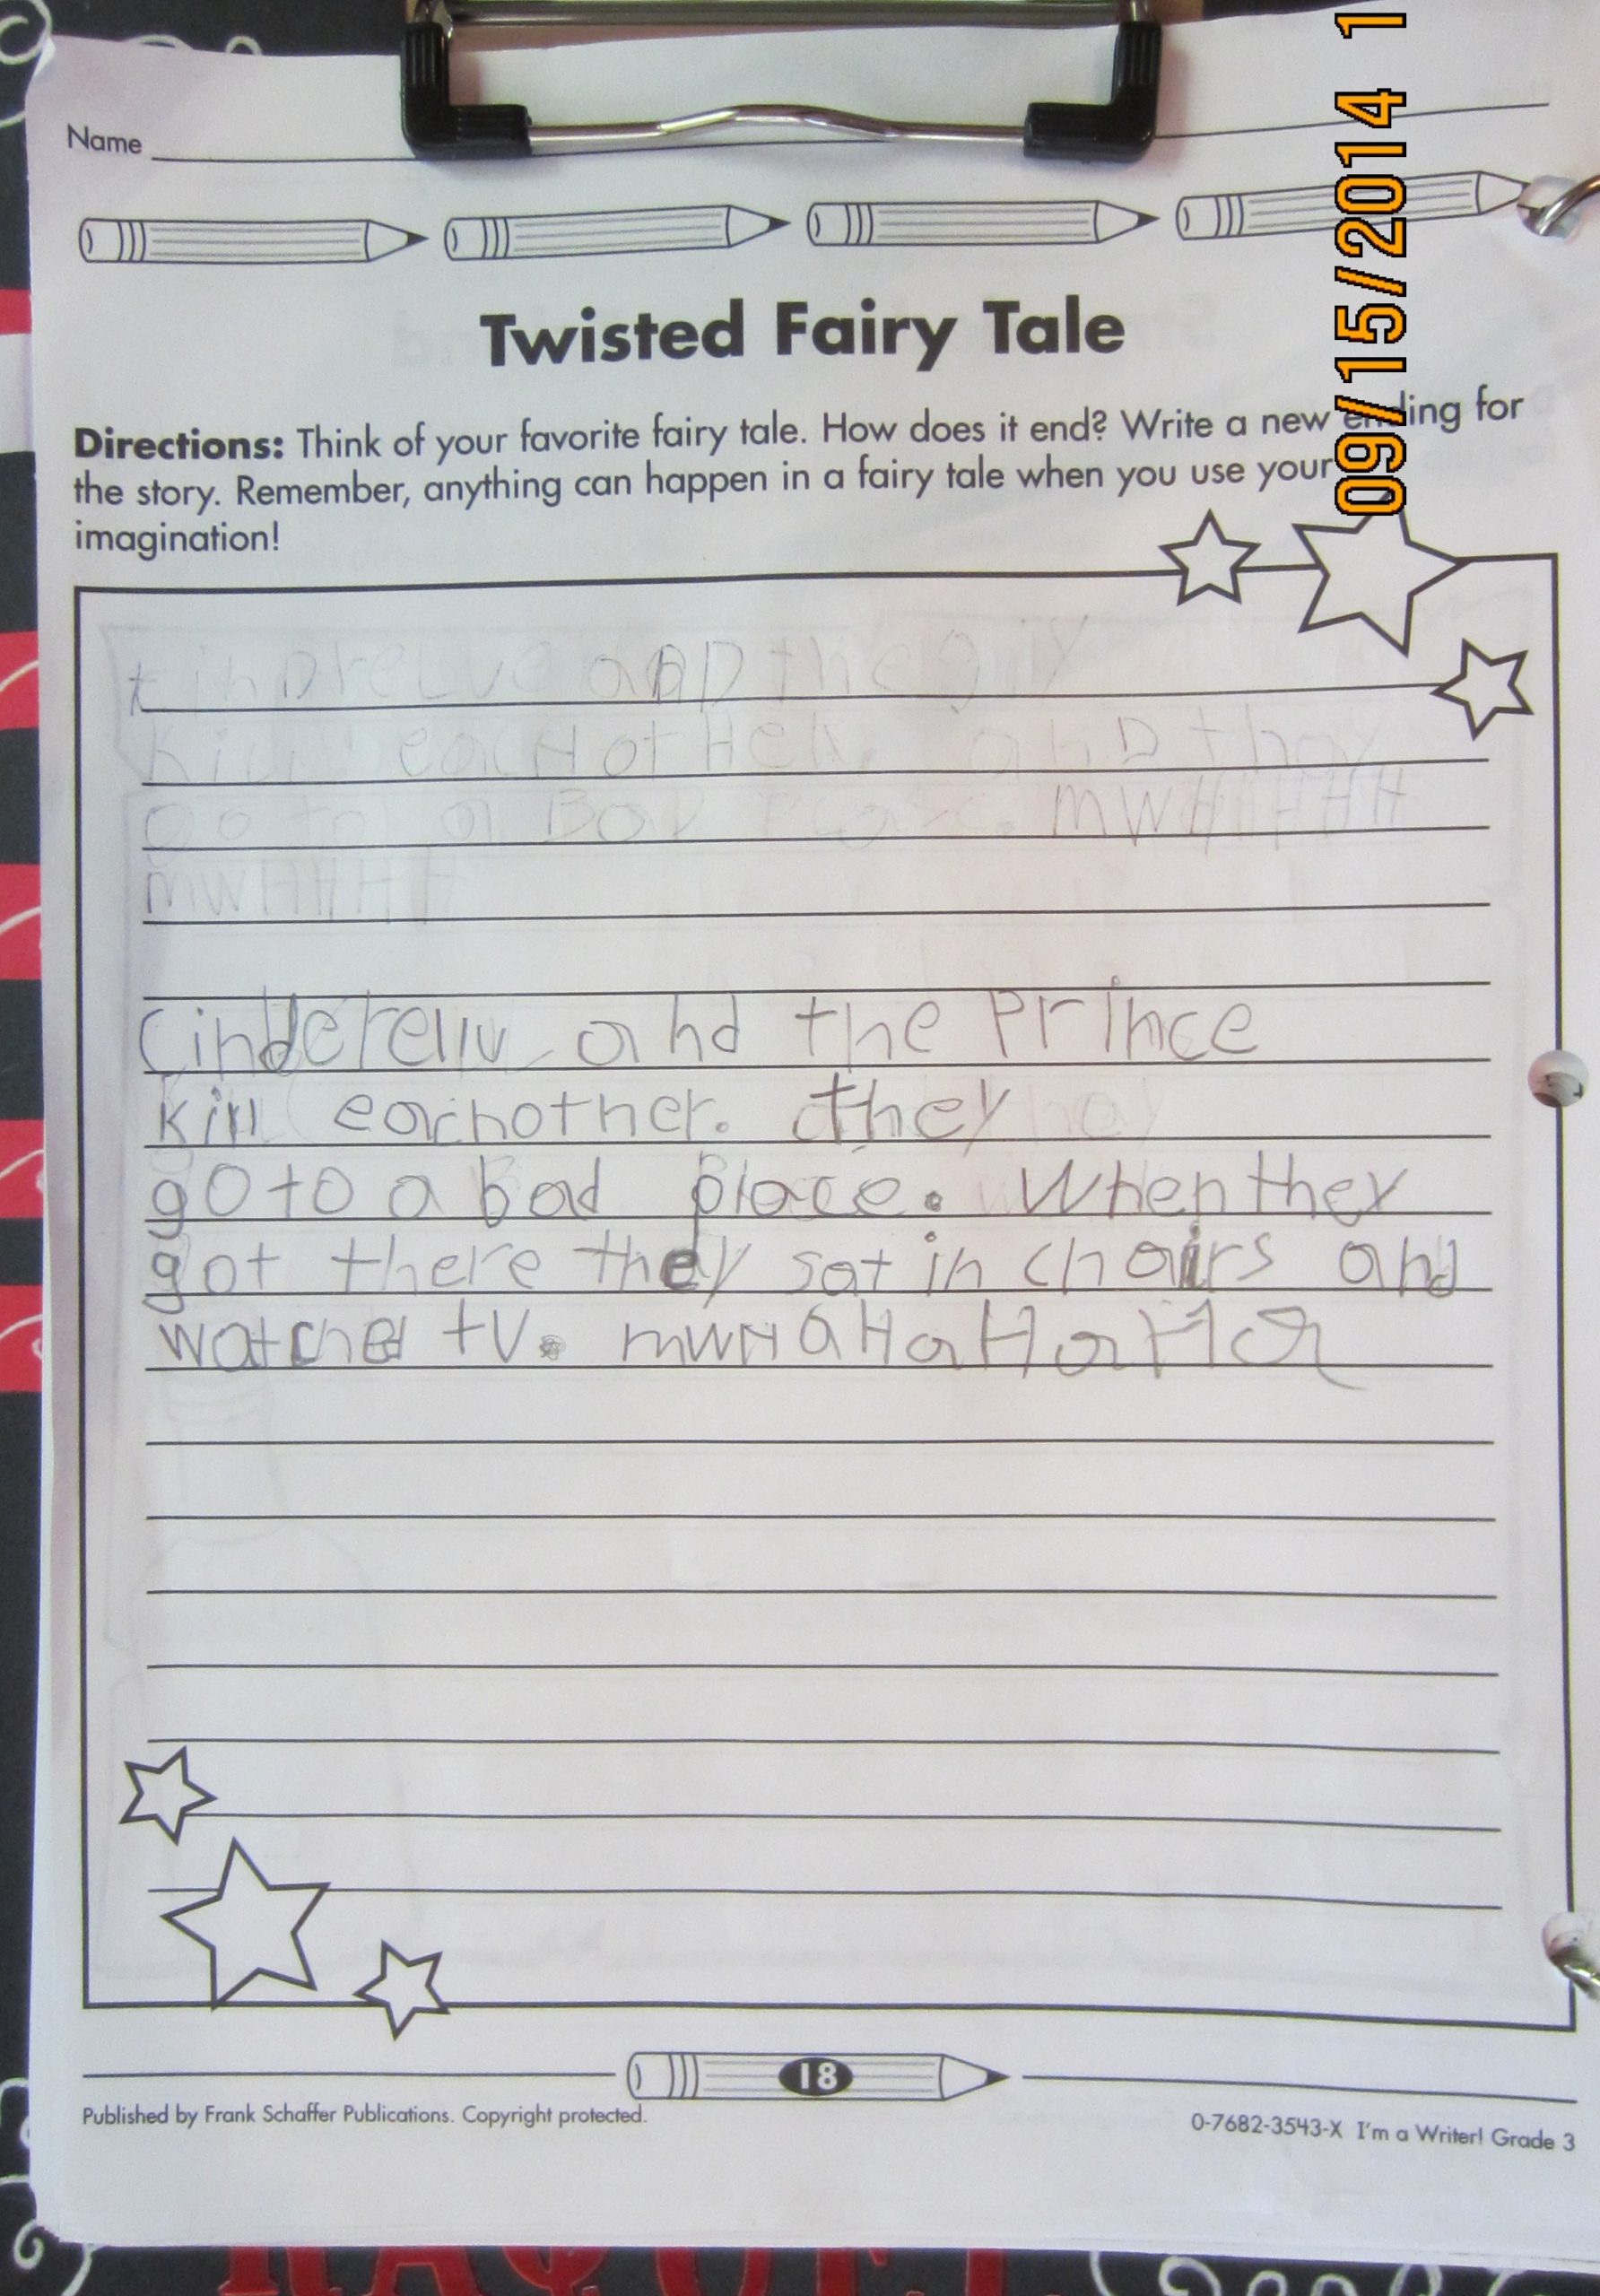 Name
09/15/2014 1
Twisted Fairy Tale
Directions: Think of your favorite fairy tale. How does it end? Write a new ending for
the story. Remember, anything can happen in a fairy tale when you use your
imagination!
anD the
Kill eachother. anD they
go to a BaD Place. MWHHHHH
MWHHHHH
Cinderella and the Prince
kill eachother. they
go to a bad place. When they
got there they sat in chairs and
watched tv. mwHaHaHaHaHa
18
Published by Frank Schaffer Publications. Copyright protected.
0-7682-3543-X I'm a Writer! Grade 3